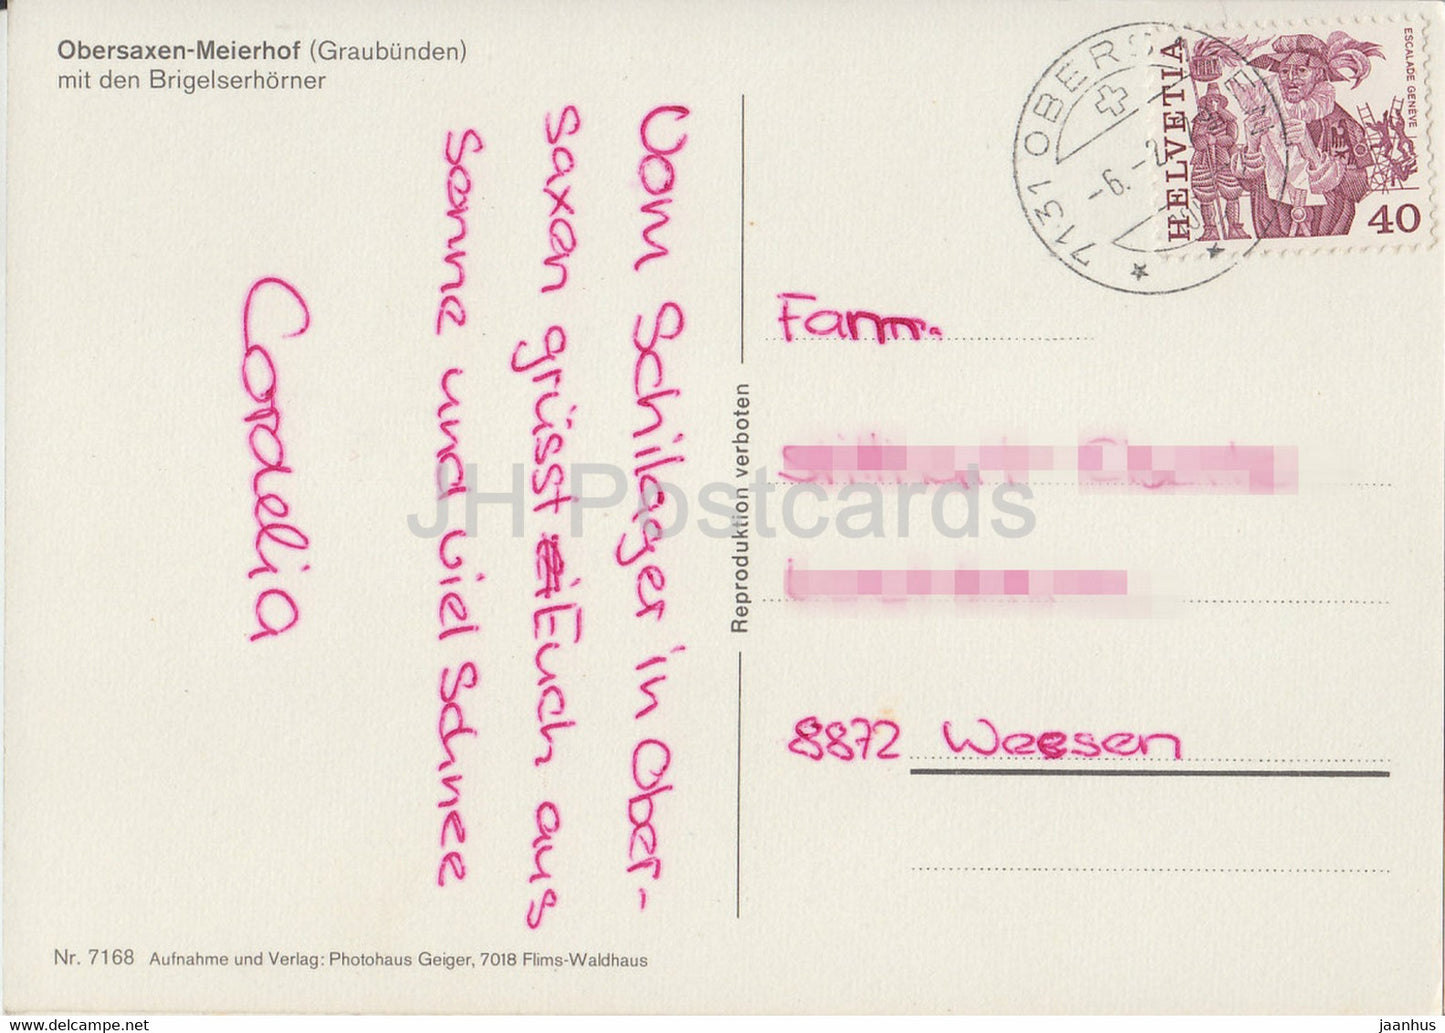 Obersaxen-Meierhof (Graubünden)
mit den Brigelserhörner
Vom Schilager in Ober-
saxen grüsst Euch aus
Sonne und viel Schnee
Cordelia
Reproduktion verboten
HELVETIA
ESCALADE GENÈVE
40
7131 OBERS
-6.-2
Fam.
8872 Weesen
JH Postcards
Nr. 7168 Aufnahme und Verlag: Photohaus Geiger, 7018 Flims-Waldhaus
www.delcampe.net
jaanhus